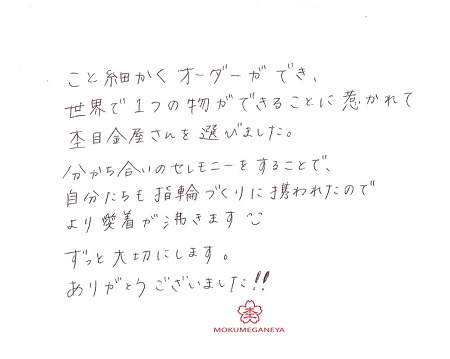 こと細かくオーダーができ、
世界で1つの物ができることに惹かれて
杢目金屋さんを選びました。
分かち合いのセレモニーをすることで、
自分たちも指輪づくりに携われたので
より愛着が沸きます
ずっと大切にします。
ありがとうございました!!
杢
MOKUMEGANEYA